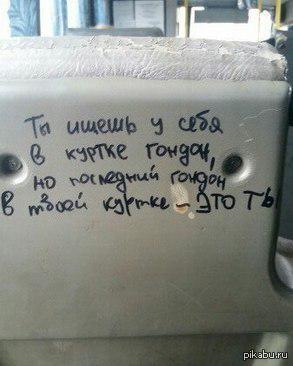 Ты ищешь у себя
в куртке гондон,
но последний гондон
в твоей куртке – ЭТО ТЫ
pikabu.ru